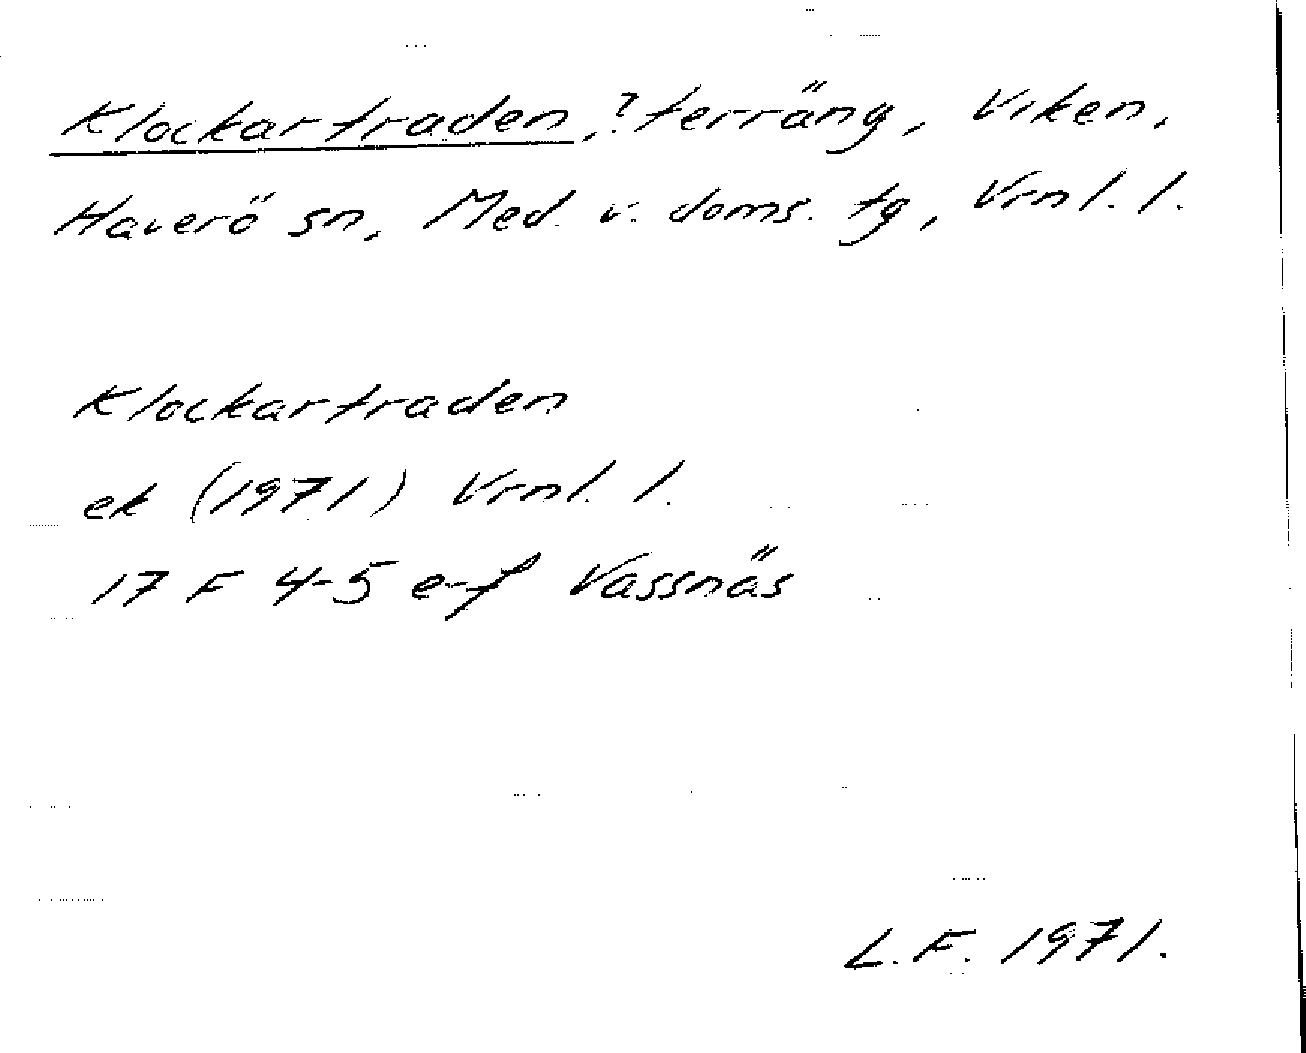 Klockartraden, ? terräng, Viken,
Haverö sn, Med. v. doms. tg, Vrnl. l.
Klockartraden
ek (1971) Vrnl. l.
17 F 4-5 e-f Vassnäs
L.F. 1971.